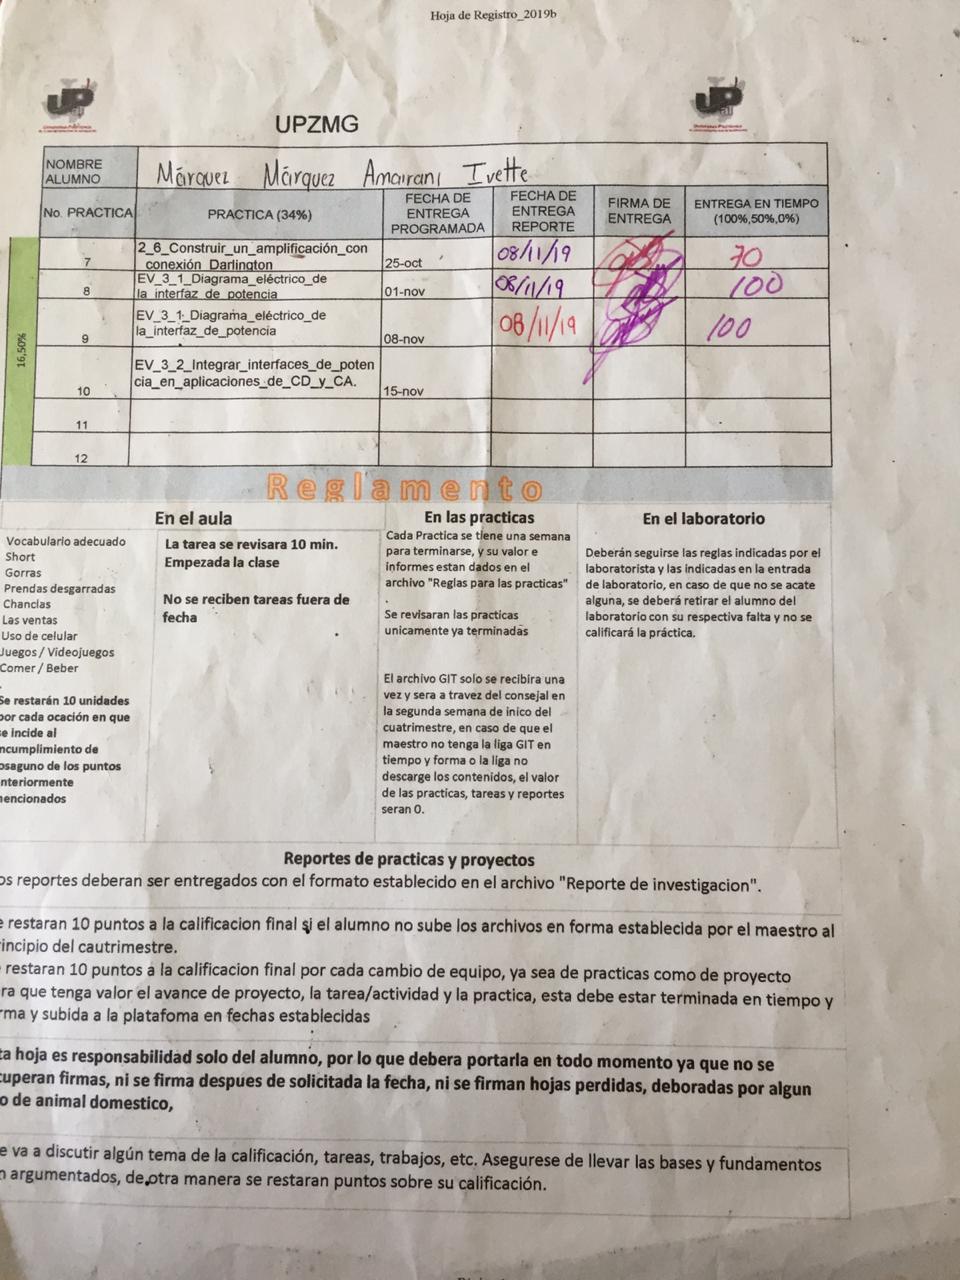 Hoja de Registro_2019b
UP
UP
UPZMG
NOMBRE
ALUMNO
Márquez Márquez Amairani Ivette
No. PRACTICA
PRACTICA (34%)
FECHA DE
ENTREGA
PROGRAMADA
FECHA DE
ENTREGA
REPORTE
FIRMA DE
ENTREGA
ENTREGA EN TIEMPO
(100%,50%,0%)
16,50%
7
2_6_Construir_un_amplificación_con
_conexión_Darlington
25-oct
08/11/19
70
8
EV_3_1_Diagrama_eléctrico_de
la_interfaz_de_potencia
01-nov
08/11/19
100
9
EV_3_1_Diagrama_eléctrico_de
la_interfaz_de_potencia
08-nov
08/11/19
100
10
EV_3_2_Integrar_interfaces_de_poten
cia_en_aplicaciones_de_CD_y_CA.
15-nov
11
12
Reglamento
En el aula
Vocabulario adecuado
Short
Gorras
Prendas desgarradas
Chanclas
Las ventas
Uso de celular
Juegos / Videojuegos
Comer / Beber
.
Se restarán 10 unidades
por cada ocación en que
se incide al
ncumplimiento de
osaguno de los puntos
nteriormente
encionados
La tarea se revisara 10 min.
Empezada la clase
No se reciben tareas fuera de
fecha
En las practicas
Cada Practica se tiene una semana
para terminarse, y su valor e
informes estan dados en el
archivo "Reglas para las practicas"
.
Se revisaran las practicas
unicamente ya terminadas
El archivo GIT solo se recibira una
vez y sera a travez del consejal en
la segunda semana de inico del
cuatrimestre, en caso de que el
maestro no tenga la liga GIT en
tiempo y forma o la liga no
descargue los contenidos, el valor
de las practicas, tareas y reportes
seran 0.
En el laboratorio
Deberán seguirse las reglas indicadas por el
laboratorista y las indicadas en la entrada
de laboratorio, en caso de que no se acate
alguna, se deberá retirar el alumno del
laboratorio con su respectiva falta y no se
calificará la práctica.
Reportes de practicas y proyectos
os reportes deberan ser entregados con el formato establecido en el archivo "Reporte de investigacion".
e restaran 10 puntos a la calificacion final si el alumno no sube los archivos en forma establecida por el maestro al
rincipio del cautrimestre.
restaran 10 puntos a la calificacion final por cada cambio de equipo, ya sea de practicas como de proyecto
ra que tenga valor el avance de proyecto, la tarea/actividad y la practica, esta debe estar terminada en tiempo y
rma y subida a la platafoma en fechas establecidas
ta hoja es responsabilidad solo del alumno, por lo que debera portarla en todo momento ya que no se
cuperan firmas, ni se firma despues de solicitada la fecha, ni se firman hojas perdidas, deboradas por algun
o de animal domestico,
e va a discutir algún tema de la calificación, tareas, trabajos, etc. Asegurese de llevar las bases y fundamentos
n argumentados, de otra manera se restaran puntos sobre su calificación.